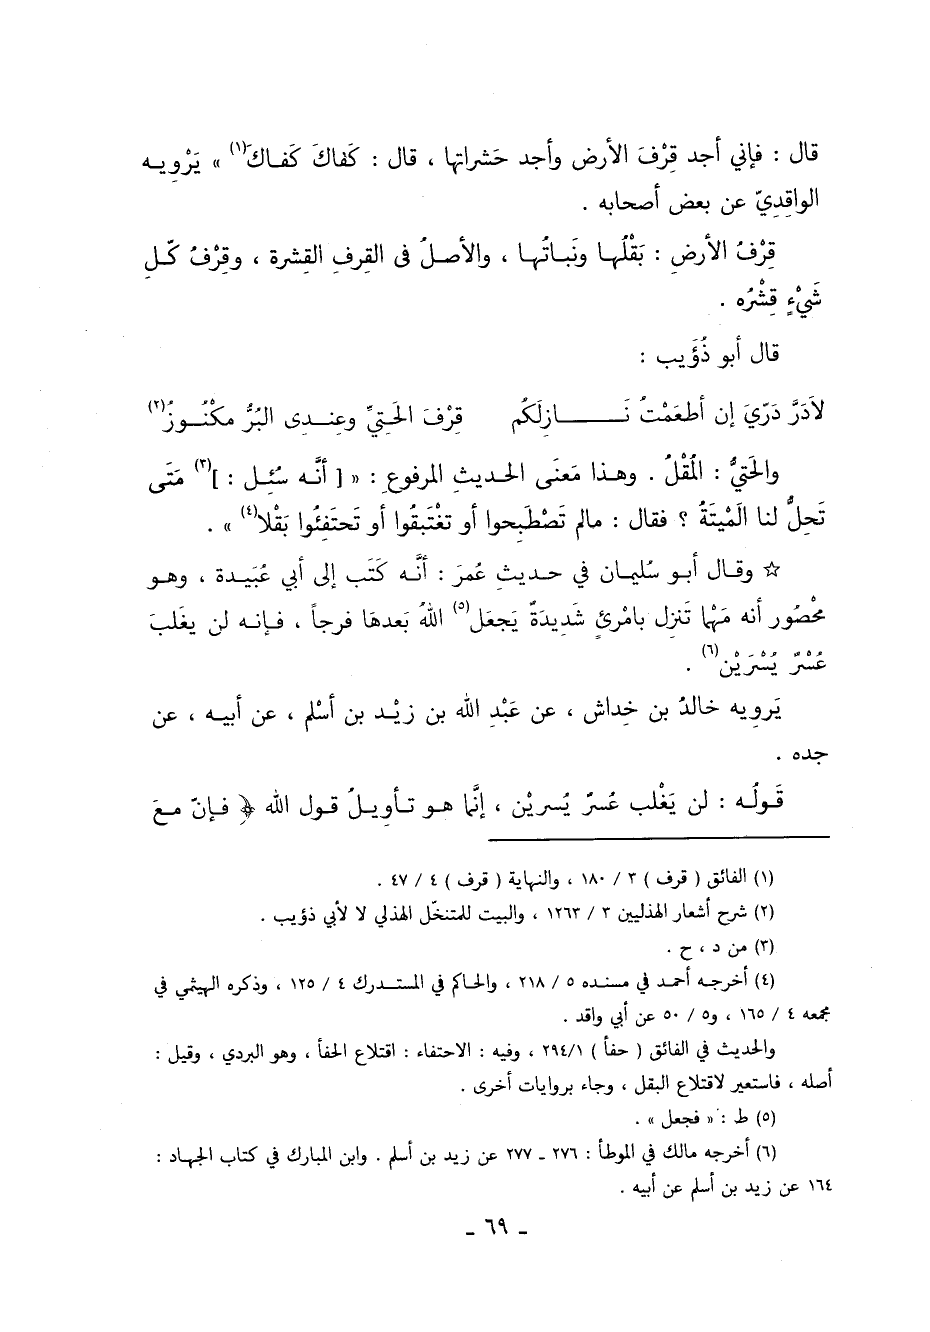 قال : فإني أجد قِرْفَ الأرضِ وأجد حَشراتها ، قال : كَفاكَ كَفاكَ(١) » يَرْوِيـه
الواقِدِيّ عن بعض أصحابه .
قِرْفُ الأرضِ : بَقْلُها ونَباتُها ، والأصلُ فى القِرفِ القِشرة ، وقِرْفُ كلِّ
شَيْءٍ قِشْرُه .
قال أبو ذُؤَيب :
لاَدَرَّ دَرِّيَ إن أطعَمْتُ نَـــــازِلَكُم    قِرْفَ الحَتِيِّ وعِنـدِى البُرُّ مكْنُـوزُ(٢)
والحَتِيُّ : المُقْلُ . وهـذا مَعنَى الحديثِ المرفوعِ : « [ أنَّـه سُئِـل : ](٣) مَتَى
تَحِلُّ لنا المَيْتَةُ ؟ فقال : مالم تَصْطَبِحوا أو تغْتَبِقُوا أو تَحتَفِئُوا بَقْلا(٤) » .
☆ وقـال أبـو سُليمان في حـديثِ عُمرَ : أنَّـه كَتَب إلى أبي عُبَيـدة ، وهـو
محْصُور أنه مَهْما تَنزِل بامْرِئٍ شَديدَةٌ يَجعَل(٥) اللهُ بَعدهَا فرجاً ، فـإنـه لن يغلِبَ
عُسْرٌ يُسْرَيْن(٦) .
يَروِيه خالدُ بن خِداش ، عن عَبْدِ الله بن زيْـد بن أسْلم ، عن أبيـه ، عن
جده .
قَولُـه : لن يَغْلب عُسرٌ يُسريْن ، إنَّما هـو تـأويـلُ قول الله ﴿ فـإنّ مـعَ
(١) الفائق ( قرف ) ٣ / ١٨٠ ، والنهاية ( قرف ) ٤ / ٤٧ .
(٢) شرح أشعار الهذليين ٣ / ١٢٦٣ ، والبيت للمتنخّل الهذلي لا لأبي ذؤيب .
(٣) من د ، ح .
(٤) أخرجـه أحمـد في مسنـده ٥ / ٢١٨ ، والحاكم في المستـدرك ٤ / ١٢٥ ، وذكره الهيثمي في
مجمعه ٤ / ١٦٥ ، و٥ / ٥٠ عن أبي واقد .
والحديث في الفائق ( حفأ ) ٢٩٤/١ ، وفيه : الاحتفاء : اقتلاع الحفأ ، وهو البردي ، وقيل :
أصله ، فاستعير لاقتلاع البقل ، وجاء بروايات أخرى .
(٥) ط : « فجعل » .
(٦) أخرجه مالك في الموطأ : ٢٧٦ ـ ٢٧٧ عن زيد بن أسلم . وابن المبارك في كتاب الجهاد :
١٦٤ عن زيد بن أسلم عن أبيه .
ـ ٦٩ ـ